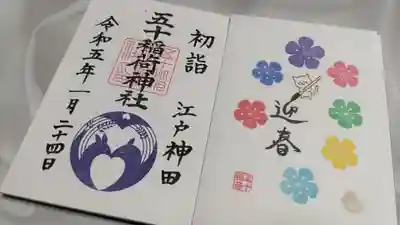 初詣
江戸神田
五十稲荷神社
令和五年一月二十四日
迎春